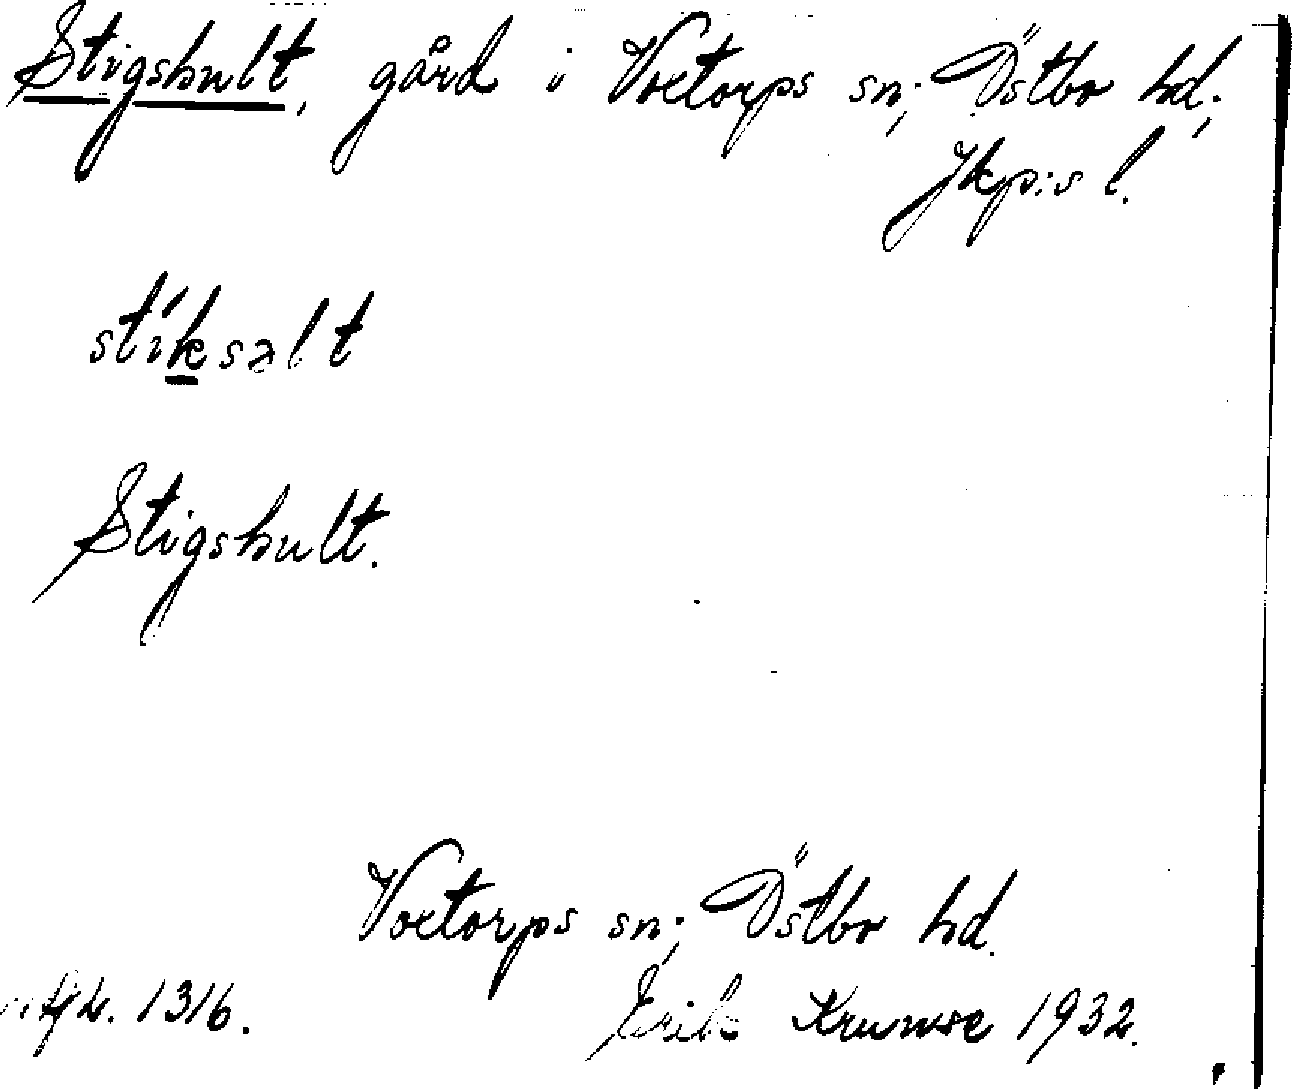 Stigshult, gård i Voxtorps sn; Östbo hd;
Jkp:s l.
stíksəlt
Stigshult.
Voxtorps sn; Östbo hd.
1316.
Erik 1932.